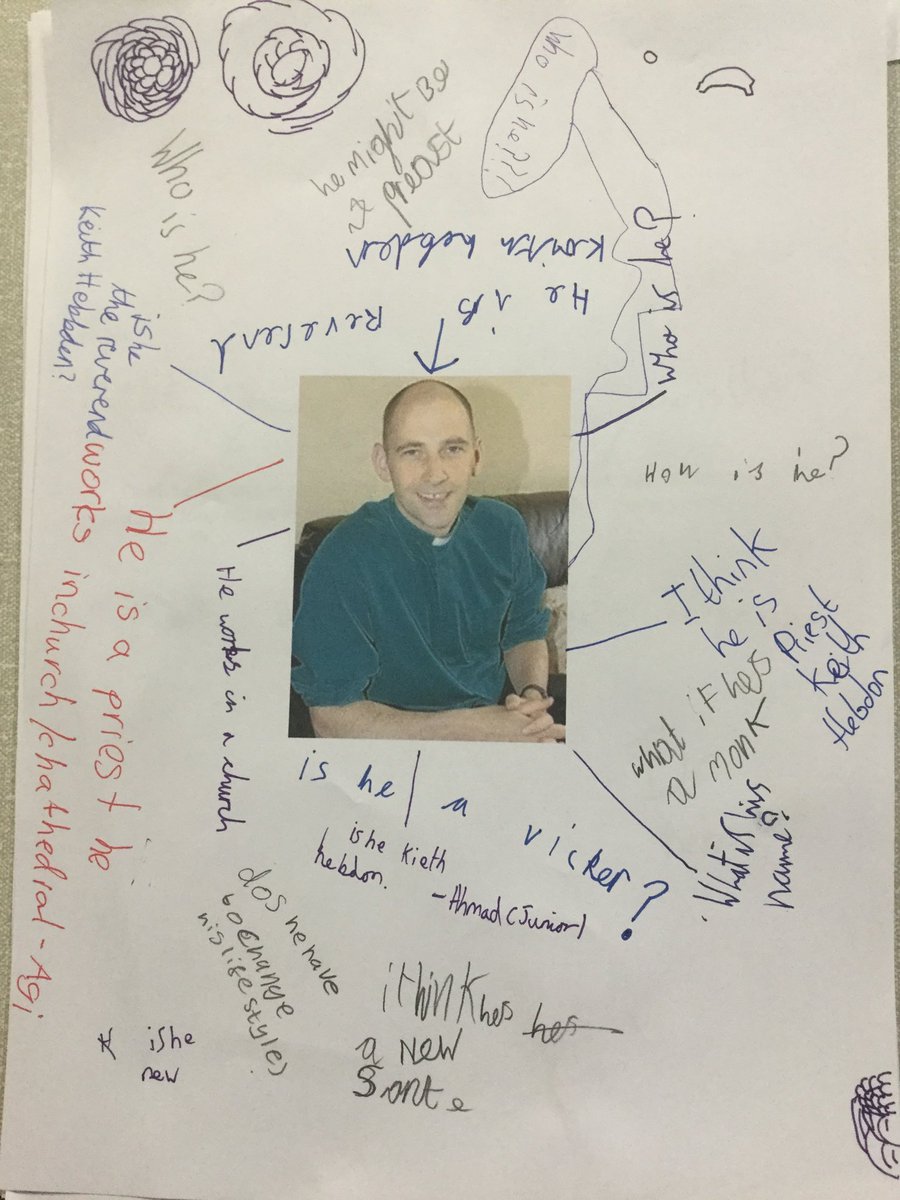 who is he???
he might Be
a preast
Who is he?
Who is he?
He is
Reverend
Kowith hebden
is he
the reverend
Keith Hebbden?
How is he?
I think
he is
Priest
Keith
Hebdon
what if hes
a monk
What is his
name?
He is a priest he
works inchurch/chathedral - Agi
He works in a church
is he a vicker?
is he Kieth
hebdon.
- Ahmad (Junior)
dos he have
to change
his life style?
i think hes hes
a new
Sante
is he
new